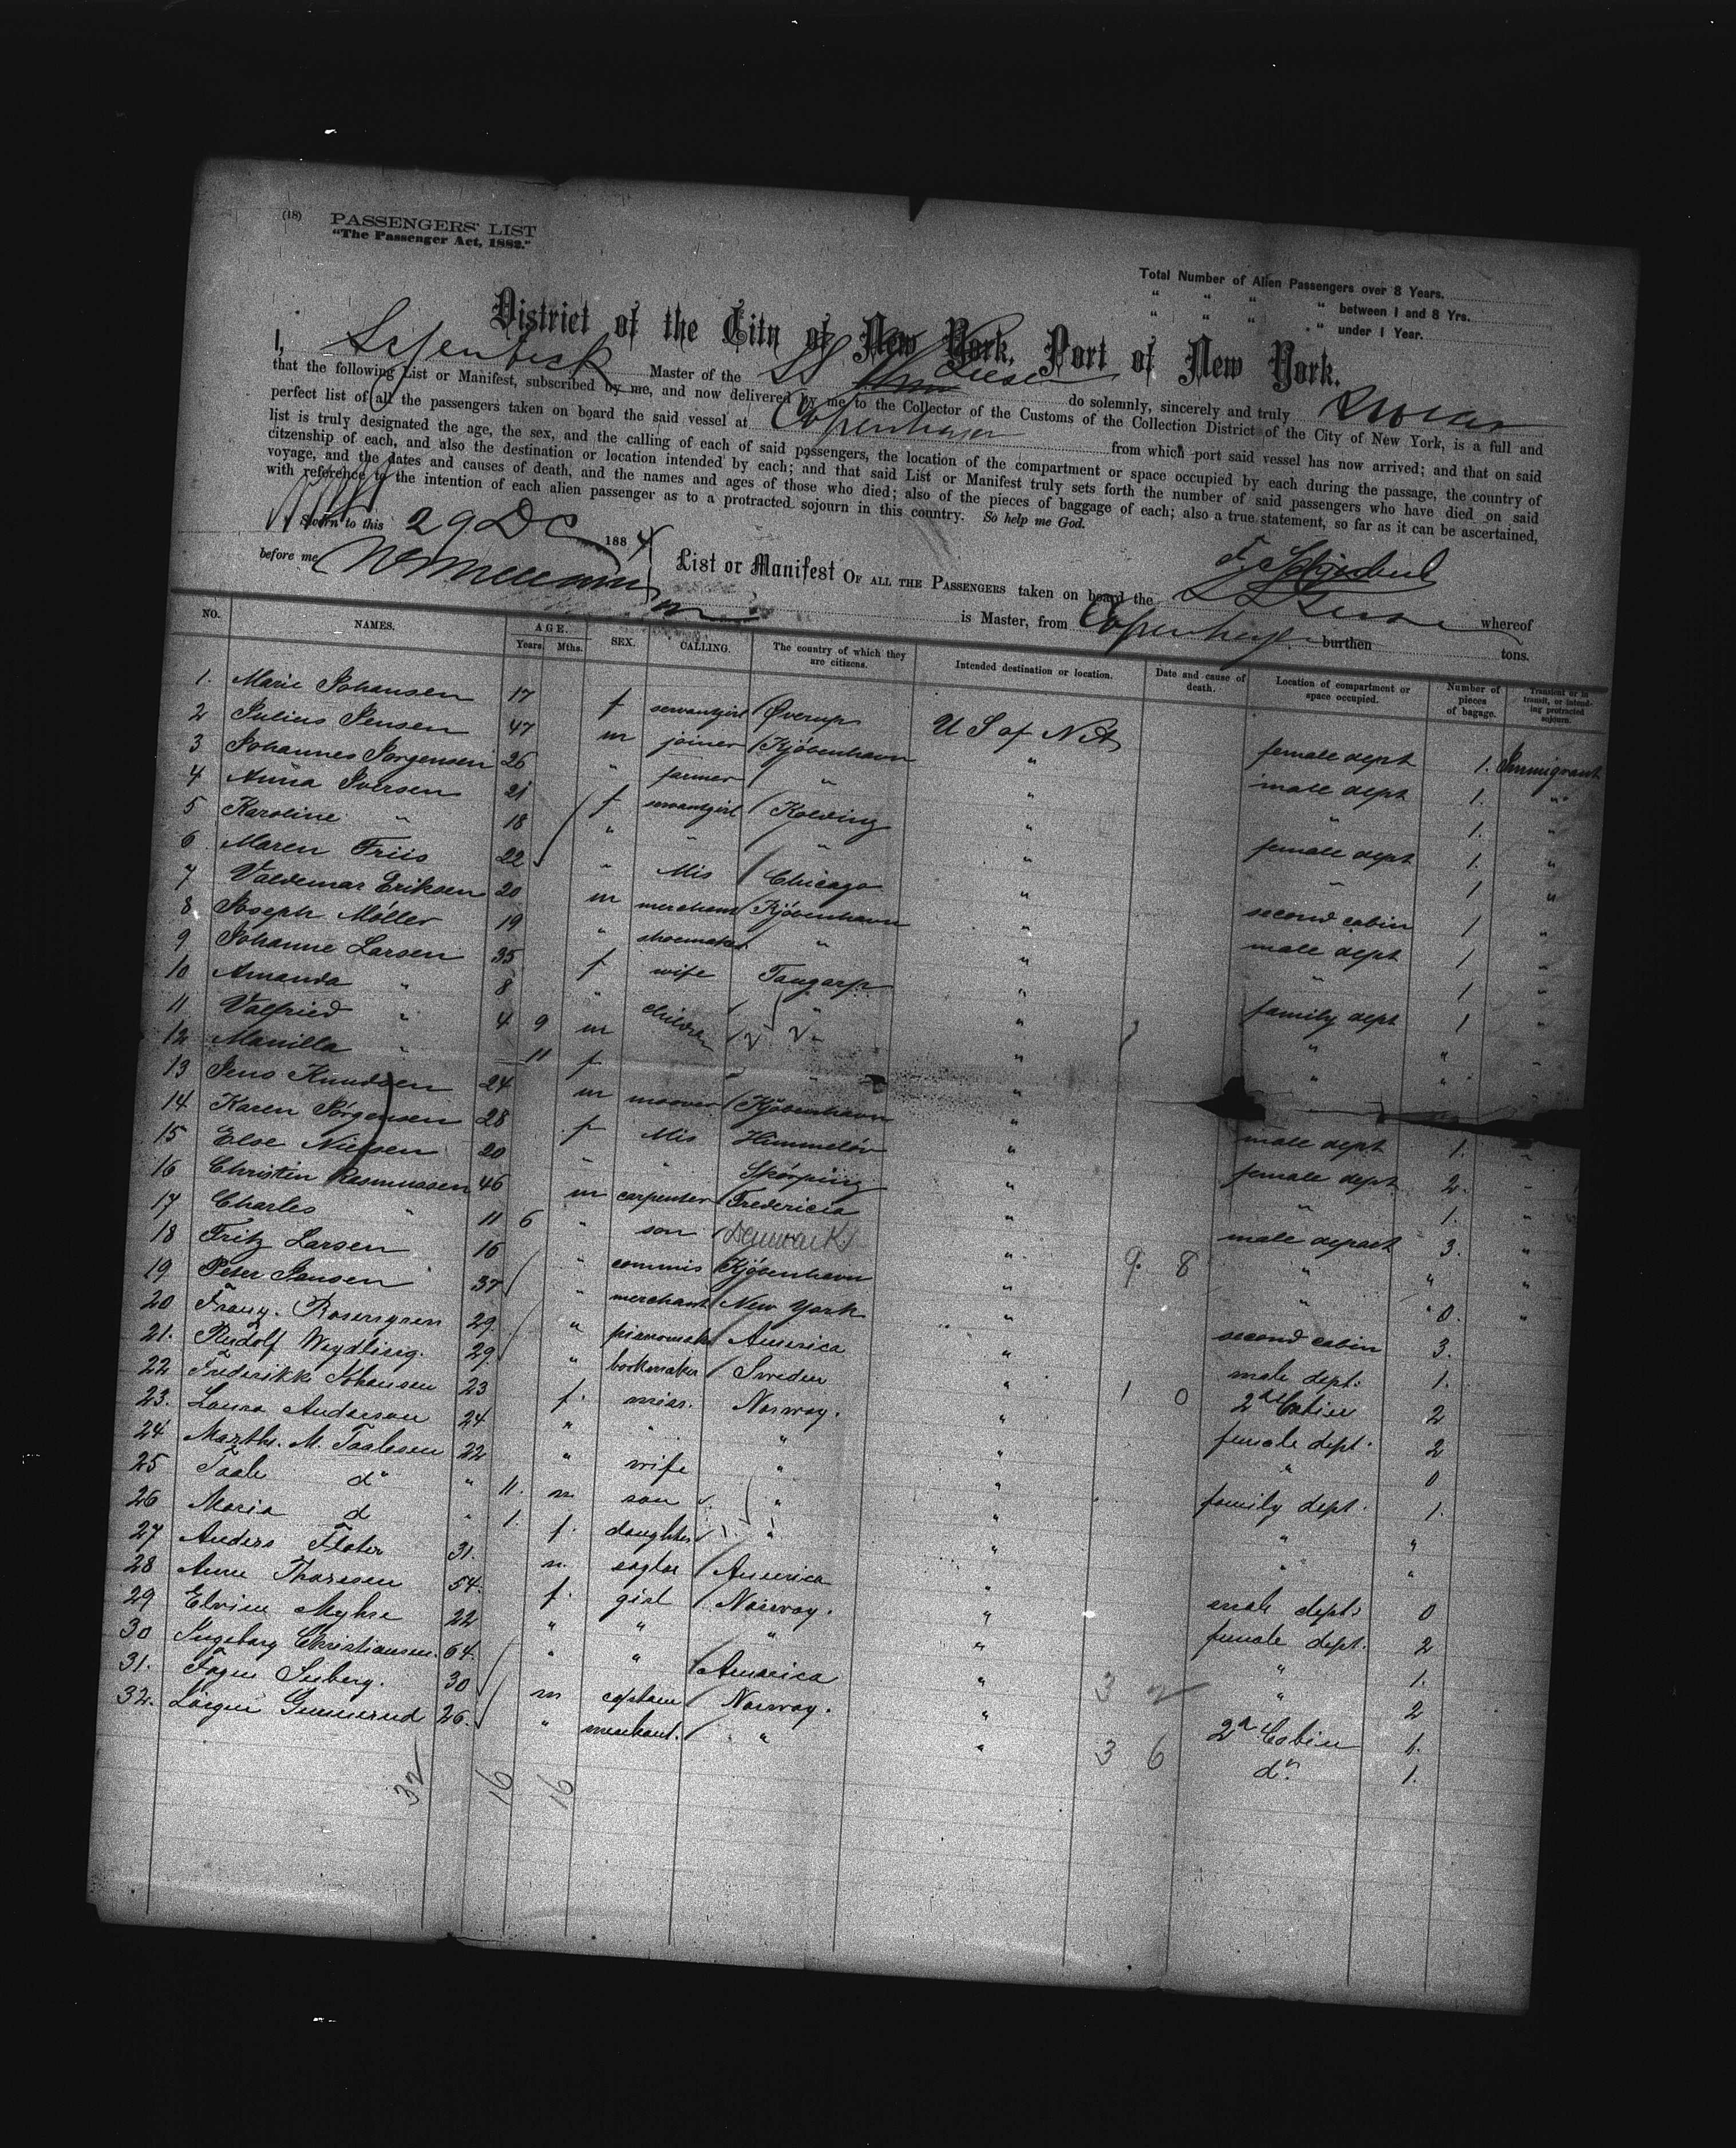 (18)
PASSENGERS' LIST
"The Passenger Act, 1882."
Total Number of Alien Passengers over 8 Years.
" " " " between 1 and 8 Yrs.
" " " " under 1 Year.
District of the City of New York, Port of New York.
I, Master of the SS do solemnly, sincerely and truly swear
that the following List or Manifest, subscribed by me, and now delivered by me to the Collector of the Customs of the Collection District of the City of New York, is a full and
perfect list of all the passengers taken on board the said vessel at Copenhagen from which port said vessel has now arrived; and that on said
list is truly designated the age, the sex, and the calling of each of said passengers, the location of the compartment or space occupied by each during the passage, the country of
citzenship of each, and also the destination or location intended by each; and that said List or Manifest truly sets forth the number of said passengers who have died on said
voyage, and the dates and causes of death, and the names and ages of those who died; also of the pieces of baggage of each; also a true statement, so far as it can be ascertained,
with reference to the intention of each alien passenger as to a protracted sojourn in this country. So help me God.
Sworn to this 29 Dc 1884
before me
List or Manifest OF ALL THE PASSENGERS taken on board the whereof
is Master, from Copenhagen burthen tons.
NO. NAMES. AGE. Years. Mths. SEX. CALLING. The country of which they are citizens. Intended destination or location. Date and cause of death. Location of compartment or space occupied. Number of pieces of bagage. Transient or in transit, or intending protracted sojourn.
1. Marie Johansen 17 f servantgirl Øverup U S of N A female dept 1. Immigrant
2 Julius Jensen 47 m joiner Kjöbenhavn " male dept 1. "
3 Johannes Jorgensen 26 " farmer " " " 1. "
4 Anna Iversen 21 f servantgirl Kolding " female dept 1. "
5 Karoline " 18 " " " " " 1 "
6 Maren Friis 22 " Mis Chicago " second cabin 1 "
7 Valdemar Eriksen 20 m merchant Kjöbenhavn " male dept 1 "
8 Joseph Möller 19 " shoemaker " " " 1 "
9 Johanne Larsen 35 f wife Taugarp " family dept 1 "
10 Amanda " 8 " children " " " " "
11 Valfried " 4 9 m " " " " "
12 Manilla " 11 f " " "
13 Jens Knudsen 24 m Kjöbenhavn " male dept 1. "
14 Karen Jörgensen 28 f Mis Himmelöv " female dept 2. "
15 Else Nielsen 20 " " Skörping " " 1. "
16 Christin Rasmussen 46 m carpenter Fredericia " male depart 3. "
17 Charles " 11 6 " son Denmark " " " "
18 Fritz Larsen 16 " commis Kjöbenhavn " 9. 8 " 0. "
19 Peter Jansen 37 " merchant New York " second cabin 3.
20 Franz. Rosengren 29 " pianomaker America " male dept. 1.
21. Rudolf Weydling. 29 " bookmaker Sweden " 1 0 2d Cabin 2
22 Frederikke Johansen 23 f. miss. Norway. " female dept. 2
23. Laura Anderson 24 " " " " " 0
24 Marthe. M. Taalesen 22 " wife " " family dept. 1.
25 Taale do " 11. m son " " " "
26 Maria d " 1. f. daughter " " " "
27 Anders Flater 31. m. America " male dept. 0
28 Anne Thoresen 54. f. girl Norway. " female dept. 2
29 Elvine Myhre 22 " " " " " 1.
30 Ingeborg Christiansen. 64. " " America " 3 2 " 2
31. Fagen Seeberg. 30 m captain Norway. " 2d Cabin 1.
32. Gunnerud 26. " merchant. " " 3 6 do. 1.
32 16 16